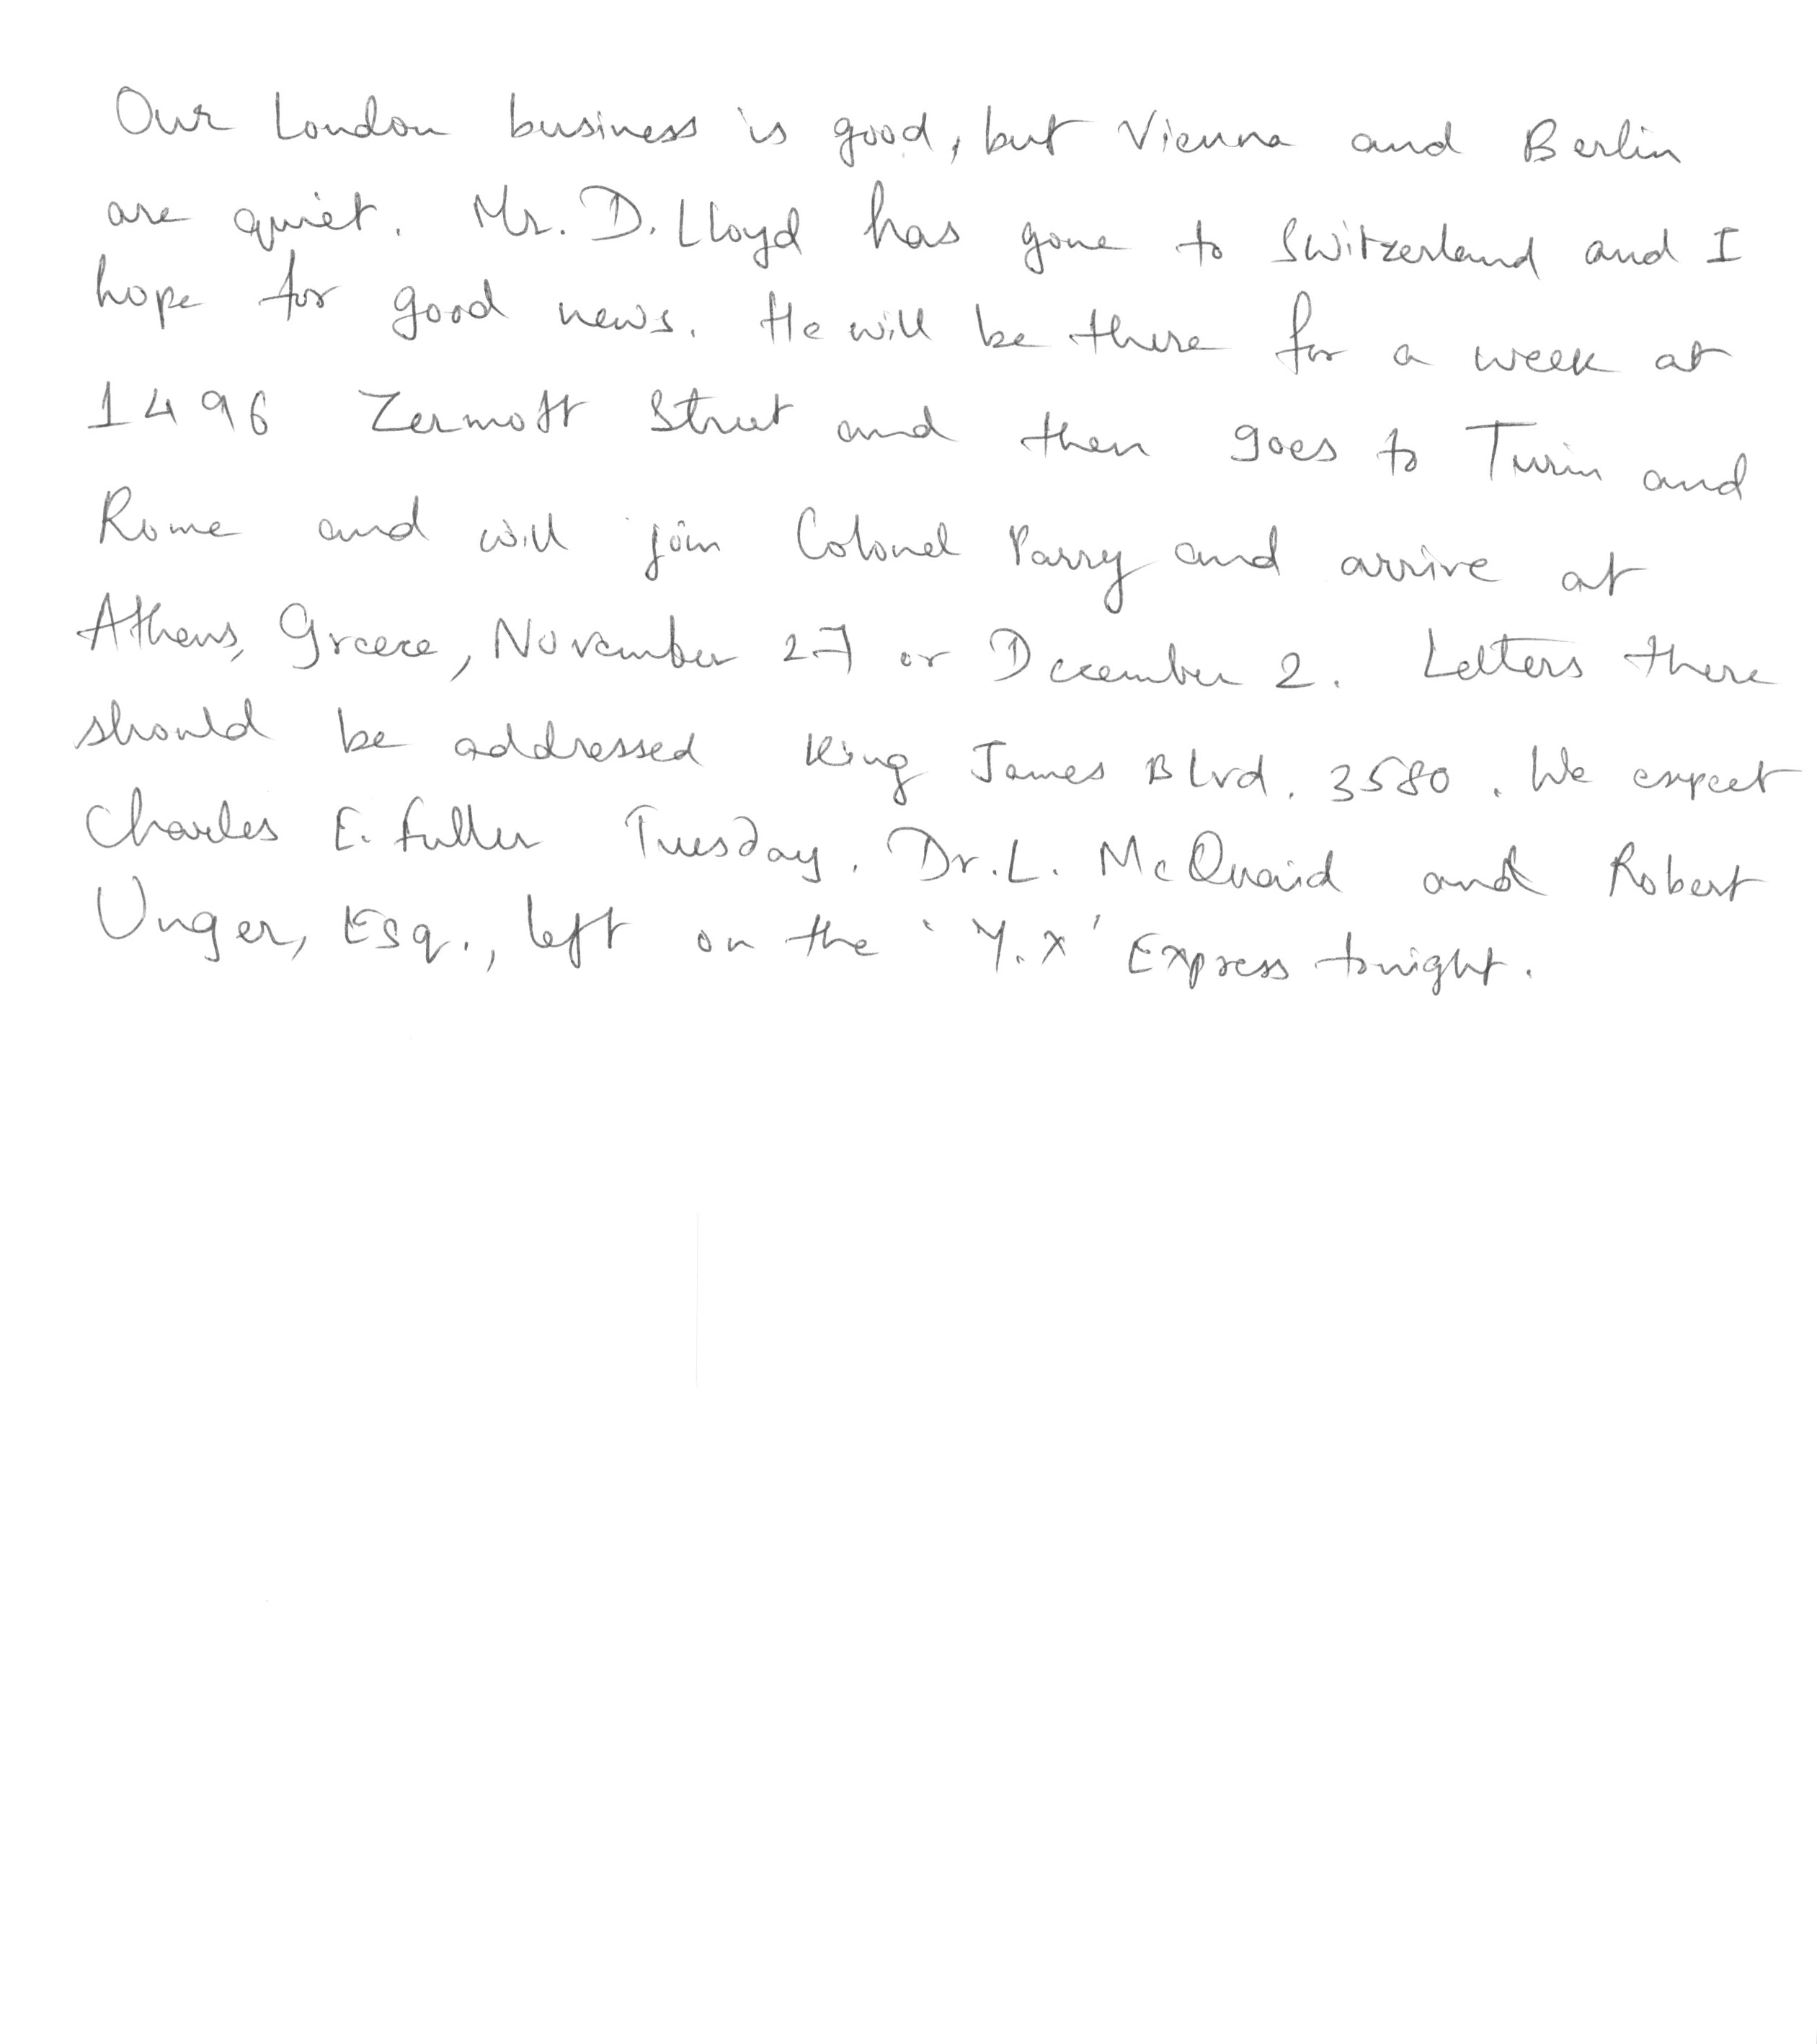 Our London business is good, but Vienna and Berlin
are quiet. Mr. D. Lloyd has gone to Switzerland and I
hope for good news. He will be there for a week at
1496 Zermott Street and then goes to Turin and
Rome and will join Colonel Parry and arrive at
Athens, Greece, November 27 or December 2. Letters there
should be addressed King James Blvd. 3580. We expect
Charles E. Fuller Tuesday. Dr. L. McQuaid and Robert
Unger, Esq., left on the 'Y.X' Express tonight.